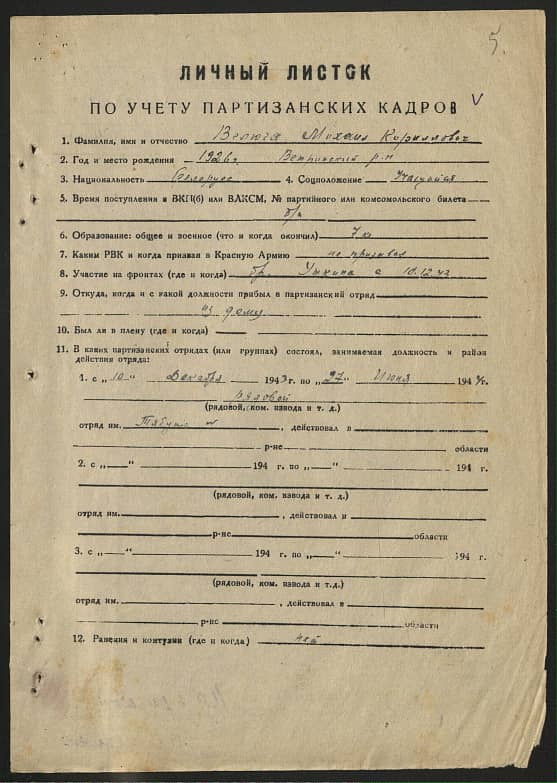 5.
ЛИЧНЫЙ ЛИСТОК
ПО УЧЕТУ ПАРТИЗАНСКИХ КАДРОВ V
1. Фамилия, имя и отчество Михаил Кириллович
2. Год и место рождения 1926г. Ветринский р-н
3. Национальность белорус 4. Соцположение учащийся
5. Время поступления в ВКП(б) или ВЛКСМ, № партийного или комсомольского билета
б/п
6. Образование: общее и военное (что и когда окончил) 7 кл
7. Каким РВК и когда призван в Красную Армию не призывал
8. Участие на фронтах (где и когда) бр. Уткина с 10.12.43
9. Откуда, когда и с какой должности прибыл в партизанский отряд
из дому
10. Был ли в плену (где и когда) —
11. В каких партизанских отрядах (или группах) состоял, занимаемая должность и район
действия отряда:
1. с „10“ Декабря 1943г. по „27“ Июня 1944г.
рядовой
(рядовой, ком. взвода и т. д.)
отряд им. , действовал в
р-не области
2. с „ “ 194 г. по „ “ 194 г.
(рядовой, ком. взвода и т. д.)
отряд им. , действовал в
р-не области
3. с „ “ 194 г. по „ “ 194 г.
(рядовой, ком. взвода и т.д.)
отряд им. , действовал в
р-не области
12. Ранения и контузии (где и когда) нет